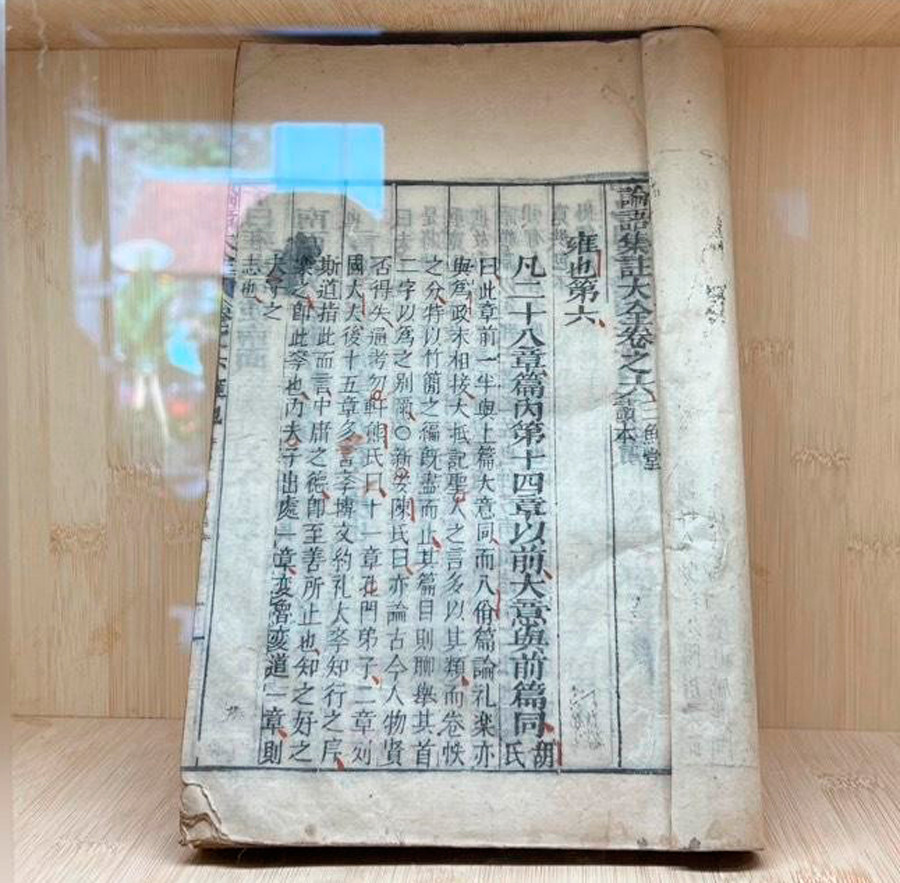 論語集註大全卷之六 三魚堂讀本
雍也第六
凡二十八章篇內第十四章以前大意與前篇同胡氏
曰此章前一半與上篇大意同而八佾篇論礼楽亦
與爲政末相接大抵記聖人之言多以其類而卷帙
之分特以竹簡之編既盡而止其篇目則聊舉其首
二字以爲之別爾○新安陳氏曰亦論古今人物賢
否得失通考勿軒熊氏曰十一章孔門弟子二章列
國大夫後十五章多言斈博文約礼大斈知行之序
斯道指此而言中庸之徳即至善所止也知之好之
樂之即此斈也內夫子出處一章变魯变道一章則
夫子之
志也